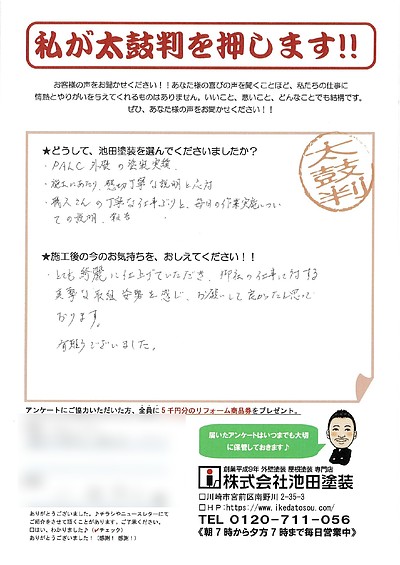 私が太鼓判を押します!!
お客様の声をお聞かせください!！あなた様の喜びの声を聞くことほど、私たちの仕事に
情熱とやりがいを与えてくれるものはありません。いいこと、悪いこと、どんなことでも結構です。
ぜひ、あなた様の声をお聞かせください！！
★どうして、池田塗装を選んでくださいましたか？
太鼓判
・PALC外壁の塗装実験。
・施工にあたり、懇切丁寧な説明と応対
・職人さんの丁寧な仕事ぶりと、毎日の作業実施につい
ての説明、報告。
★施工後の今のお気持ちを、おしえてください！！
・とても綺麗に仕上げていただき、御社の仕事に対する
真摯な取組姿勢を感じ、お願いして良かったと思って
おります。
有難うございました。
アンケートにご協力いただいた方、全員に5千円分のリフォーム商品券をプレゼント。
届いたアンケートはいつまでも大切
に保管しておきます♪
創業平成9年 外壁塗装 屋根塗装 専門店
株式会社池田塗装
□川崎市宮前区南野川2-35-3
□HP:https://www.ikedatosou.com/
TEL 0120-711-056
《朝7時から夕方7時まで毎日営業中》
ありがとうございました。♪チラシやニュースレターにて
ご紹介をさせて頂くことがあります。ご了承ください。
□はい、わかりました♪（✓チェック）
ありがとうございました！（感謝！感謝！）